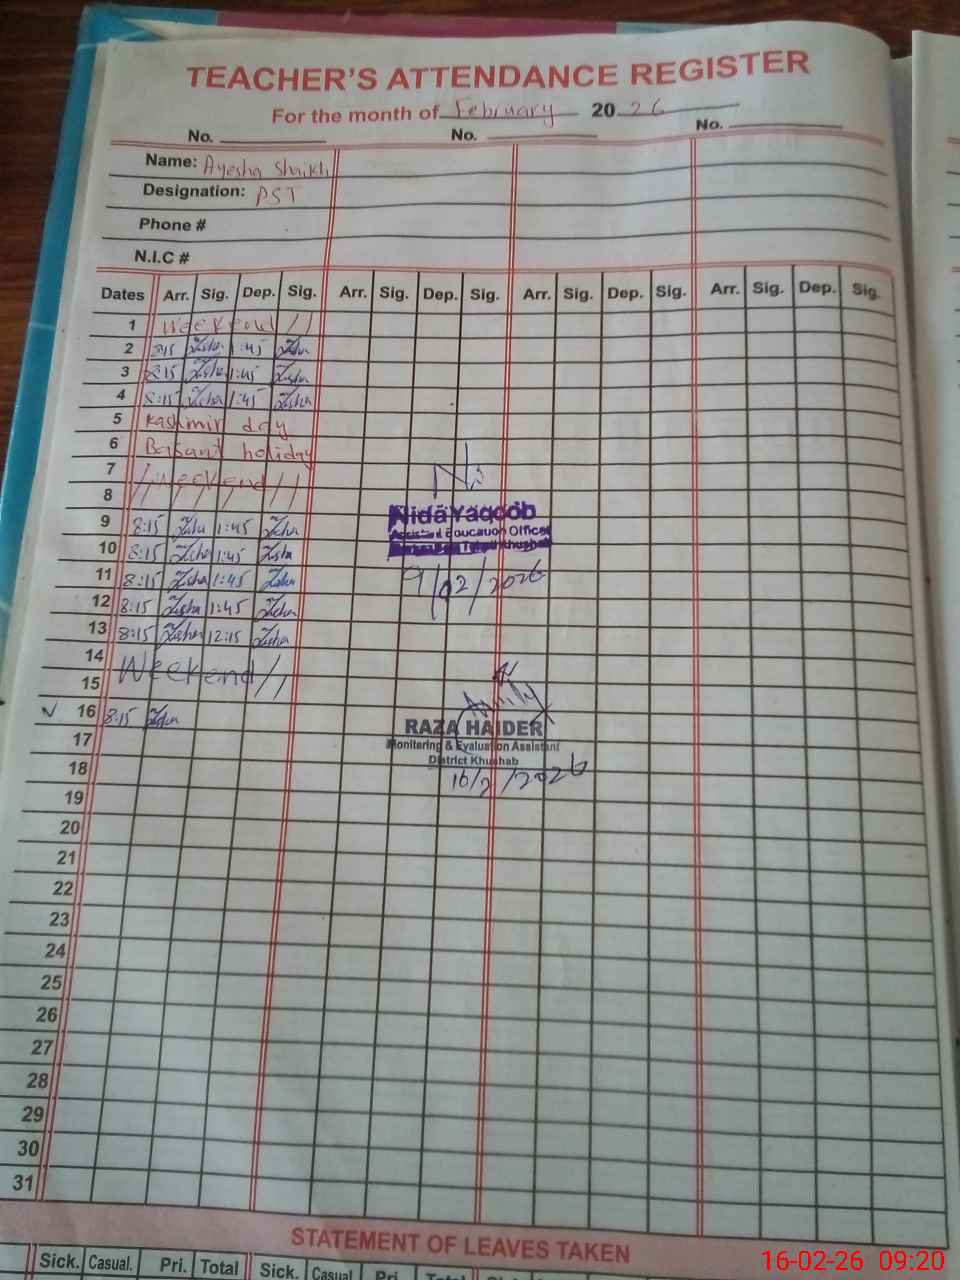 TEACHER'S ATTENDANCE REGISTER
For the month of February 2026
No. No. No.
Name: Ayesha Shaikh
Designation: PST
Phone #
N.I.C #
Dates Arr. Sig. Dep. Sig. Arr. Sig. Dep. Sig. Arr. Sig. Dep. Sig. Arr. Sig. Dep. Sig.
1 Weekend //
2 8:15 1:45
3 8:15 1:45
4 8:15 1:45
5 Kashmir day
6 Basant holiday
7 / Weekend //
8
Nida Yaqoob
9 8:15 1:45
Assistant Education Officer
10 8:15 1:45
Tehsil Khushab
11 8:15 1:45
9/02/2026
12 8:15 1:45
13 8:15 12:15
14 Weekend //
15
16 8:15
RAZA HAIDER
17
Monitoring & Evaluation Assistant
District Khushab
18
16/2/2026
19
20
21
22
23
24
25
26
27
28
29
30
31
STATEMENT OF LEAVES TAKEN
Sick. Casual. Pri. Total Sick. Casual Pri. Total
16-02-26 09:20